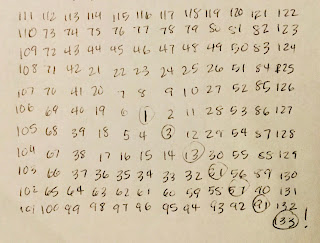 111 112 113 114 115 116 117 118 119 120 121 122
110 73 74 75 76 77 78 79 80 81 82 123
109 72 43 44 45 46 47 48 49 50 83 124
108 71 42 21 22 23 24 25 26 51 84 125
107 70 41 20 7 8 9 10 27 52 85 126
106 69 40 19 6 1 2 11 28 53 86 127
105 68 39 18 5 4 3 12 29 54 87 128
104 67 38 17 16 15 14 13 30 55 88 129
103 66 37 36 35 34 33 32 31 56 89 130
102 65 64 63 62 61 60 59 58 57 90 131
101 100 99 98 97 96 95 94 93 92 91 132
133 !